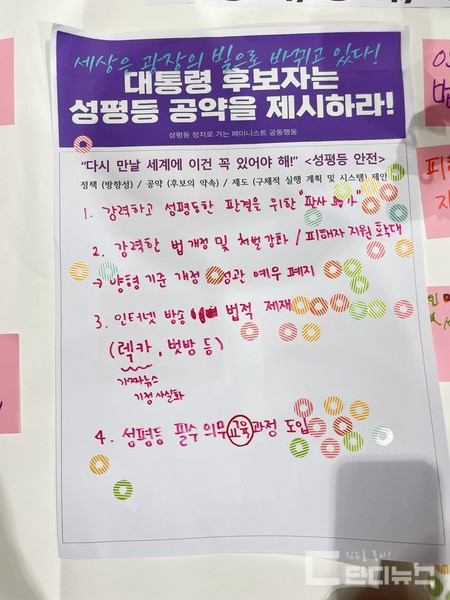 세상은 광장의 빛으로 바뀌고 있다!
대통령 후보자는
성평등 공약을 제시하라!
성평등 정치로 가는 페미니스트 공동행동
"다시 만날 세계에 이건 꼭 있어야 해!" <성평등 안전>
정책 (방향성) / 공약 (후보의 약속) / 제도 (구체적 실행 계획 및 시스템) 제안
1. 강력하고 성평등한 판결을 위한 "판사 평가"
2. 강력한 법 개정 및 처벌 강화 / 피해자 지원 확대
→ 양형 기준 개정 전관 예우 폐지
3. 인터넷 방송 법적 제재
(렉카, 벗방 등)
가짜뉴스
기정사실화
4. 성평등 필수 의무 교육 과정 도입
단디뉴스